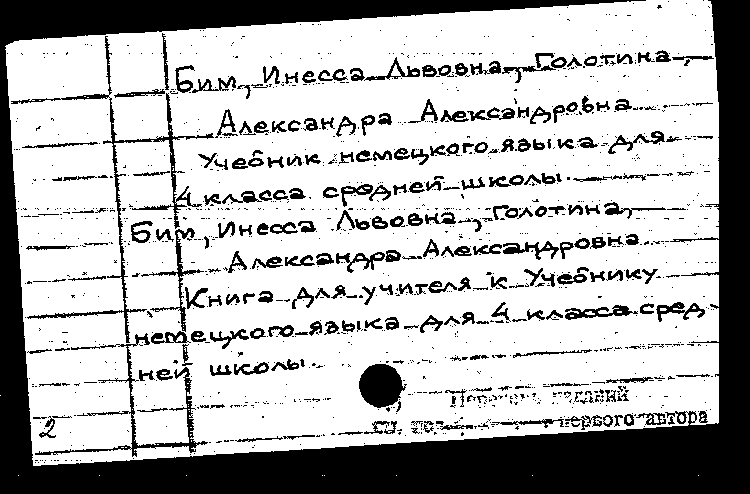 Бим, Инесса Львовна, Голотина,
Александра Александровна
Учебник немецкого языка для
4 класса средней школы.
Бим, Инесса Львовна, Голотина,
Александра Александровна
Книга для учителя к Учебнику
немецкого языка для 4 класса сред-
ней школы.
Перечень изданий
см. первого автора
2